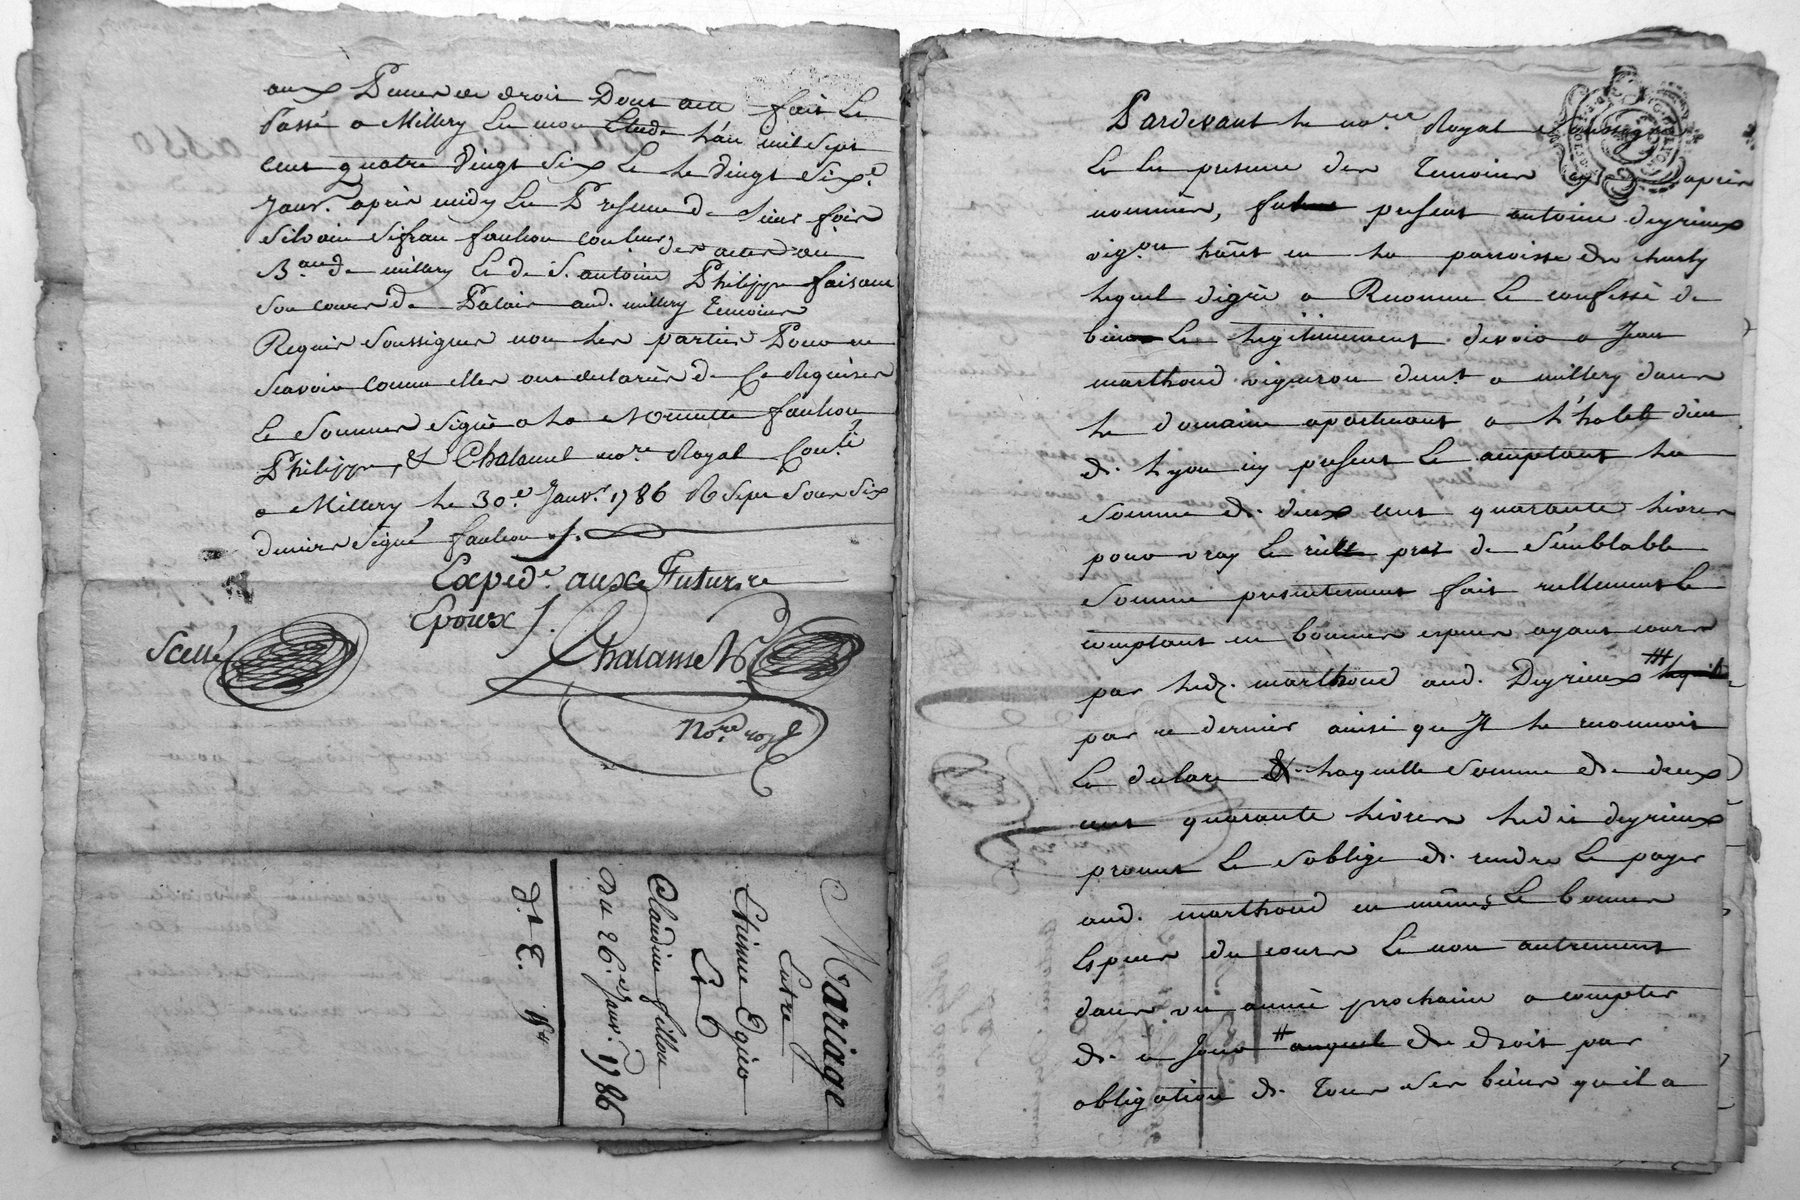 aux Peines de droit Dont acte fait Et
Passé a Millery En mon Etude L'an mil sept
cent quatre vingt six Et Le vingt six.e
Janv.r après midy En Presence de
Silvain Sifran faulion des actes au
B.au de millery Et de S. antoine Philippe faisant
son cours de Palais aud. millery Temoins
Requis soussignés non Les parties Pour ne
scavoir comme elles ont declarées de Ce Requises
Et Sommées Signé a La Minutte faulion
Philippe, & Chalamel no.re Royal Con.lé
a Millery le 30.e Janv.r 1786 R Sept sous Six
deniers Signé faulion
Exped.e aux Futurs
Epoux
Scellé
Chalamel
No.re royal
Mariage
Entre
Etienne
Et
Claudine fillou
Du 26.e Janv.r 1786
Pardevant le no.re Royal soussigné
Et En presence des Temoins cy après
nommés, fut present antoine deyrieux
vig.on hãnt en la parroisse de charly
lequel degré a Reconnu Et confessé de
bien Et legitimement devoir a Jean
marthoud vigneron demt. a millery dans
le domaine apartenant a L'hotel dieu
de Lyon icy present Et acceptant la
somme de deux cent quarante Livres
pour vray Et reel pret de semblable
somme presentement fait reellement Et
comptant en bonnes especes ayant cours
par led. marthoud aud. Deyrieux
par ce dernier ainsi qu'Il le reconnoit
Et declare laquelle somme de deux
cent quarante Livres ledit deyrieux
promet Et s'oblige de rendre Et payer
aud. marthoud en mêmes Et bonnes
Especes du cours Et non autrement
dans un année prochaine a compter
de ce Jour de droit par
obligation de tous ses biens qu'il a